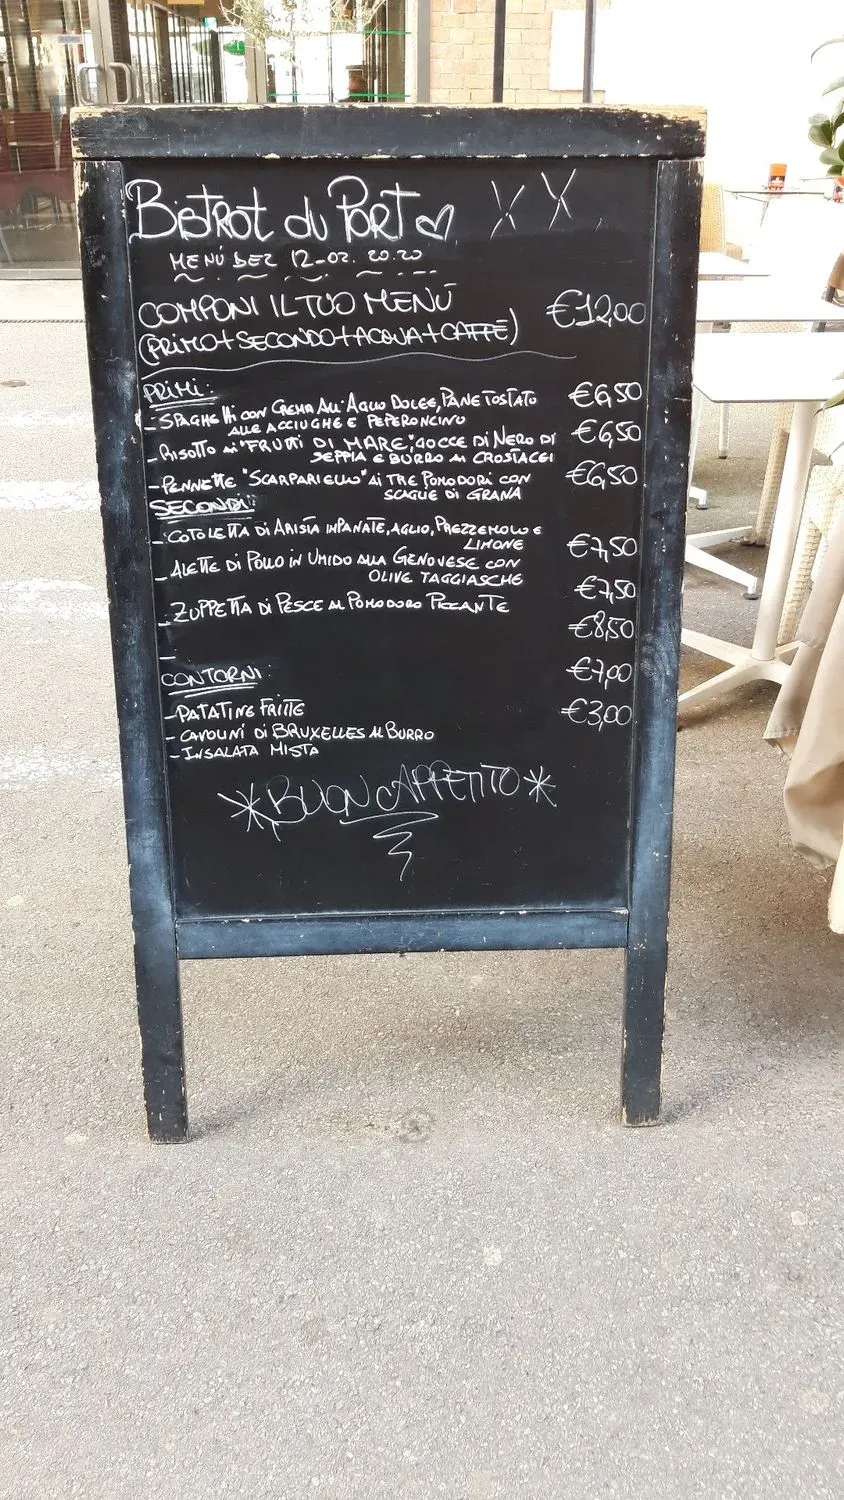 Bistrot du Port
MENÚ DEL 12-02.20.20
COMPONI IL TUO MENÚ €12,00
(PRIMO+SECONDO+ACQUA+CAFFÈ)
PRIMI:
-SPAGHETTI CON CREMA ALL'AGLIO DOLCE, PANE TOSTATO €6,50
ALLE ACCIUGHE E PEPERONCINO
-RISOTTO AI "FRUTTI DI MARE", GOCCE DI NERO DI €6,50
SEPPIA E BURRO AI CROSTACEI
-PENNETTE "SCARPARIELLO" AI TRE POMODORI CON €6,50
SCAGLIE DI GRANA
SECONDI:
-COTOLETTA DI ARISTA IMPANATE, AGLIO, PREZZEMOLO E
LIMONE €7,50
-ALETTE DI POLLO IN UMIDO ALLA GENOVESE CON
OLIVE TAGGIASCHE €7,50
-ZUPPETTA DI PESCE AL POMODORO PICCANTE
€8,50
-
CONTORNI: €7,00
-PATATINE FRITTE €3,00
-CAVOLINI DI BRUXELLES AL BURRO
-INSALATA MISTA
*BUON APPETITO*